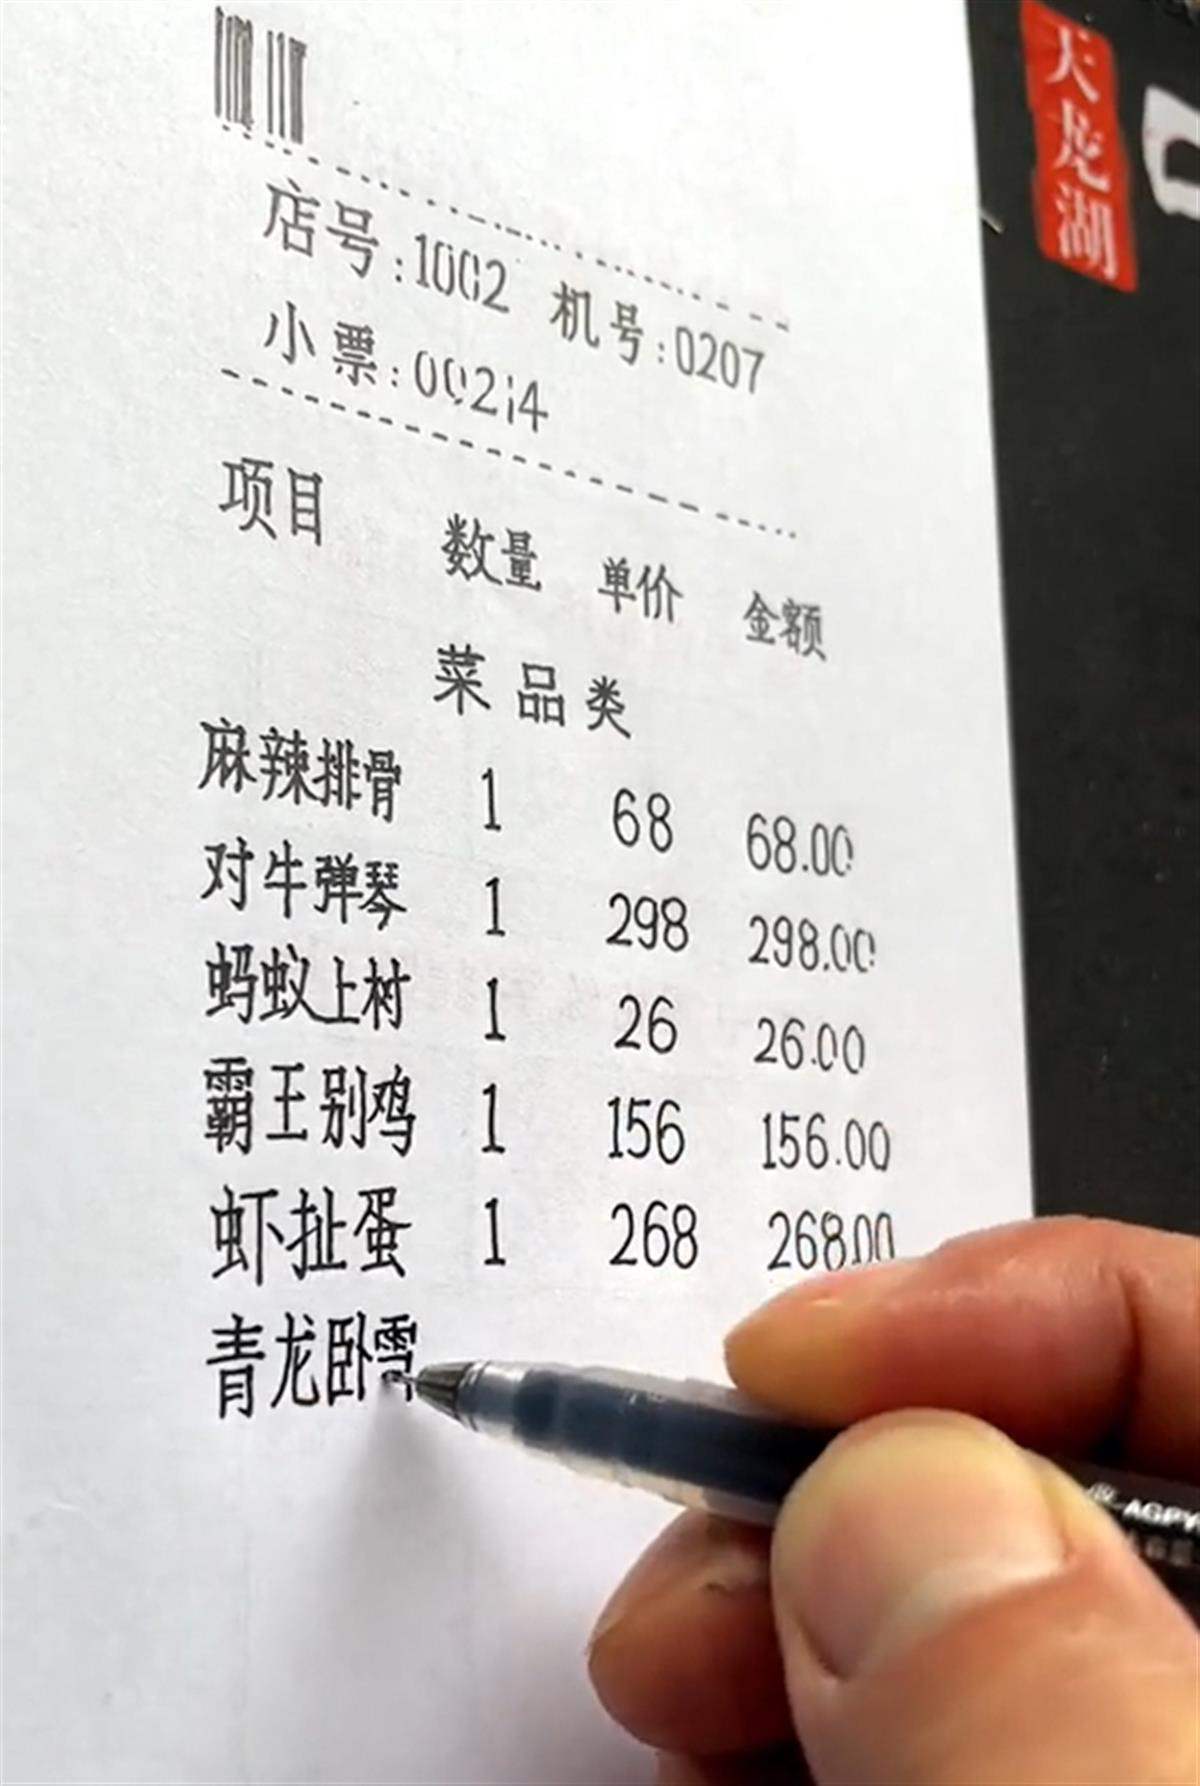 店号:1002 机号:0207
小票:00214
项目 数量 单价 金额
菜品类
麻辣排骨 1 68 68.00
对牛弹琴 1 298 298.00
蚂蚁上树 1 26 26.00
霸王别鸡 1 156 156.00
虾扯蛋 1 268 268.00
青龙卧雪
天龙湖
AGPY